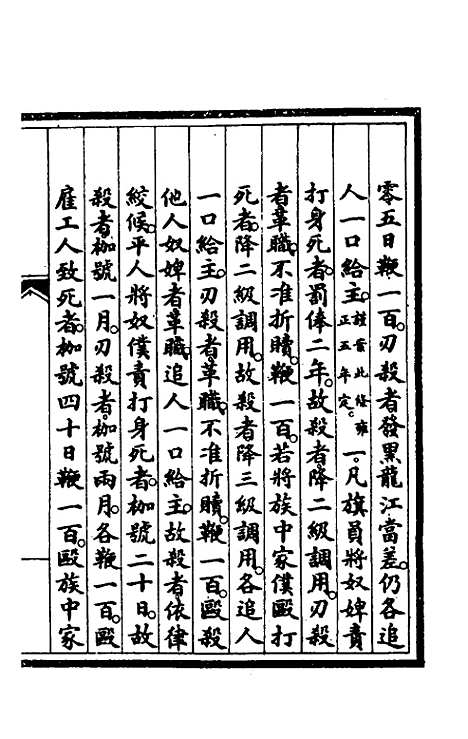 零五日鞭一百。刃殺者發黑龍江當差。仍各追
人一口給主。謹案此條雍正五年定。一。凡旗員將奴婢責
打身死者。罰俸二年。故殺者。降二級調用。刃殺
者革職。不准折贖。鞭一百。若將族中家僕毆打
死者。降二級調用。故殺者降三級調用。各追人
一口給主。刃殺者。革職。不准折贖。鞭一百。毆殺
他人奴婢者革職。追人一口給主。故殺者依律
絞候。平人將奴僕責打身死者。枷號二十日。故
殺者。枷號一月。刃殺者。枷號兩月。各鞭一百。毆
雇工人致死者。枷號四十日鞭一百。毆族中家